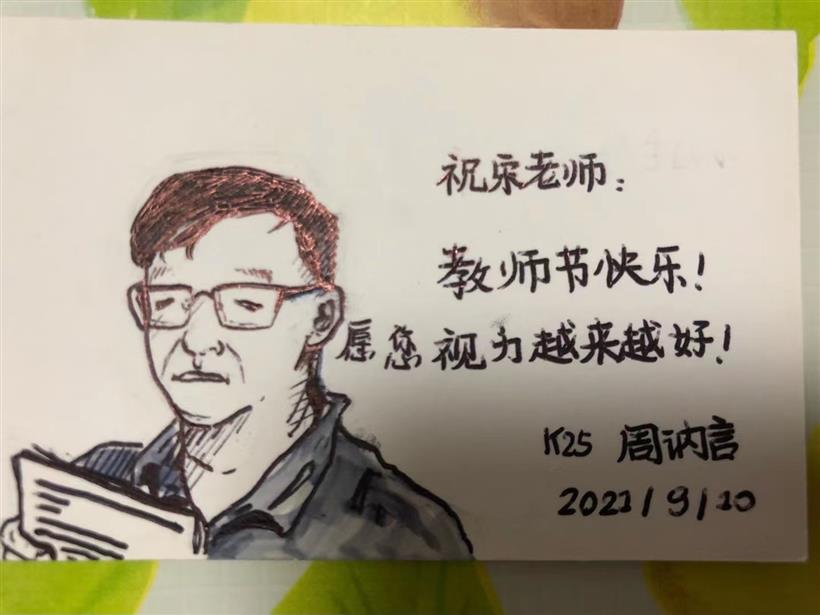 祝宋老师：
教师节快乐！
愿您视力越来越好！
K25 周讷言
2021/9/10